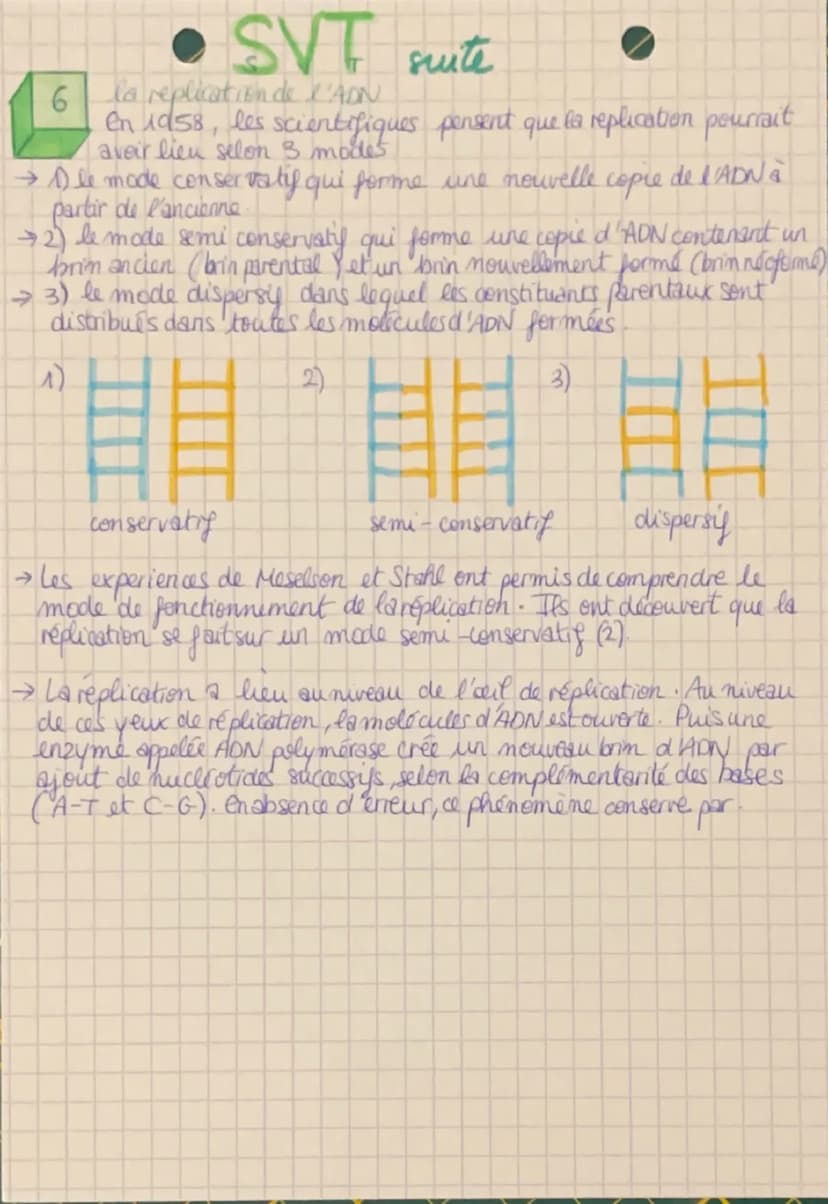 SVT suite
6 la réplication de l'ADN
En 1958, les scientifiques pensent que la replication pourrait
avoir lieu selon 3 modes
→ 1) le mode conservatif qui forme une nouvelle copie de l'ADN à
partir de l'ancienne.
→ 2) le mode semi conservatif qui forme une copie d'ADN contenant un
brim ancien (brin parental) et un brin nouvellement formé (brin néoformé)
→ 3) le mode dispersif dans lequel les constituants parentaux sont
distribués dans toutes les molécules d'ADN formées.
1) 2) 3)
conservatif semi-conservatif dispersif
→ Les experiences de Meselson et Stahl ont permis de comprendre le
mode de fonctionnement de la réplication. Ils ont découvert que la
réplication se fait sur un mode semi-conservatif (2).
→ La réplication a lieu au niveau de l'œil de réplication. Au niveau
de ces yeux de réplication, la molécules d'ADN est ouverte. Puis une
enzyme appelée ADN polymérase crée un nouveau brim d'ADN par
ajout de nucléotides successifs, selon la complémentarité des bases
(A-T et C-G). En absence d'erreur, ce phénomène conserve par.